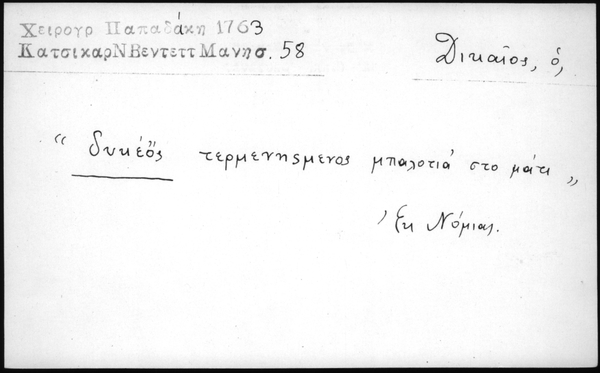 Χειρογρ Παπαδάκη 1763
ΚατσικαρΝΒεντεττΜανησ. 58
Δικαῖος, ὁ,
“ δυκέὃς τερμενησμενος μπαλοτιά στο μάτι „
Ἐκ Νόμιας.